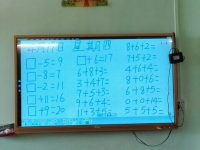 星期四
□-5=9 □+6=17 8+6+2=
□-8=7 6+8+3= 7+5+2=
□-2=11 3+4+7= 4+6+4=
7+5+7= 8+0+6=
□+11=16 6+5+7=
□+9=20 9+6+4= 0+0+14=
5+5+5=